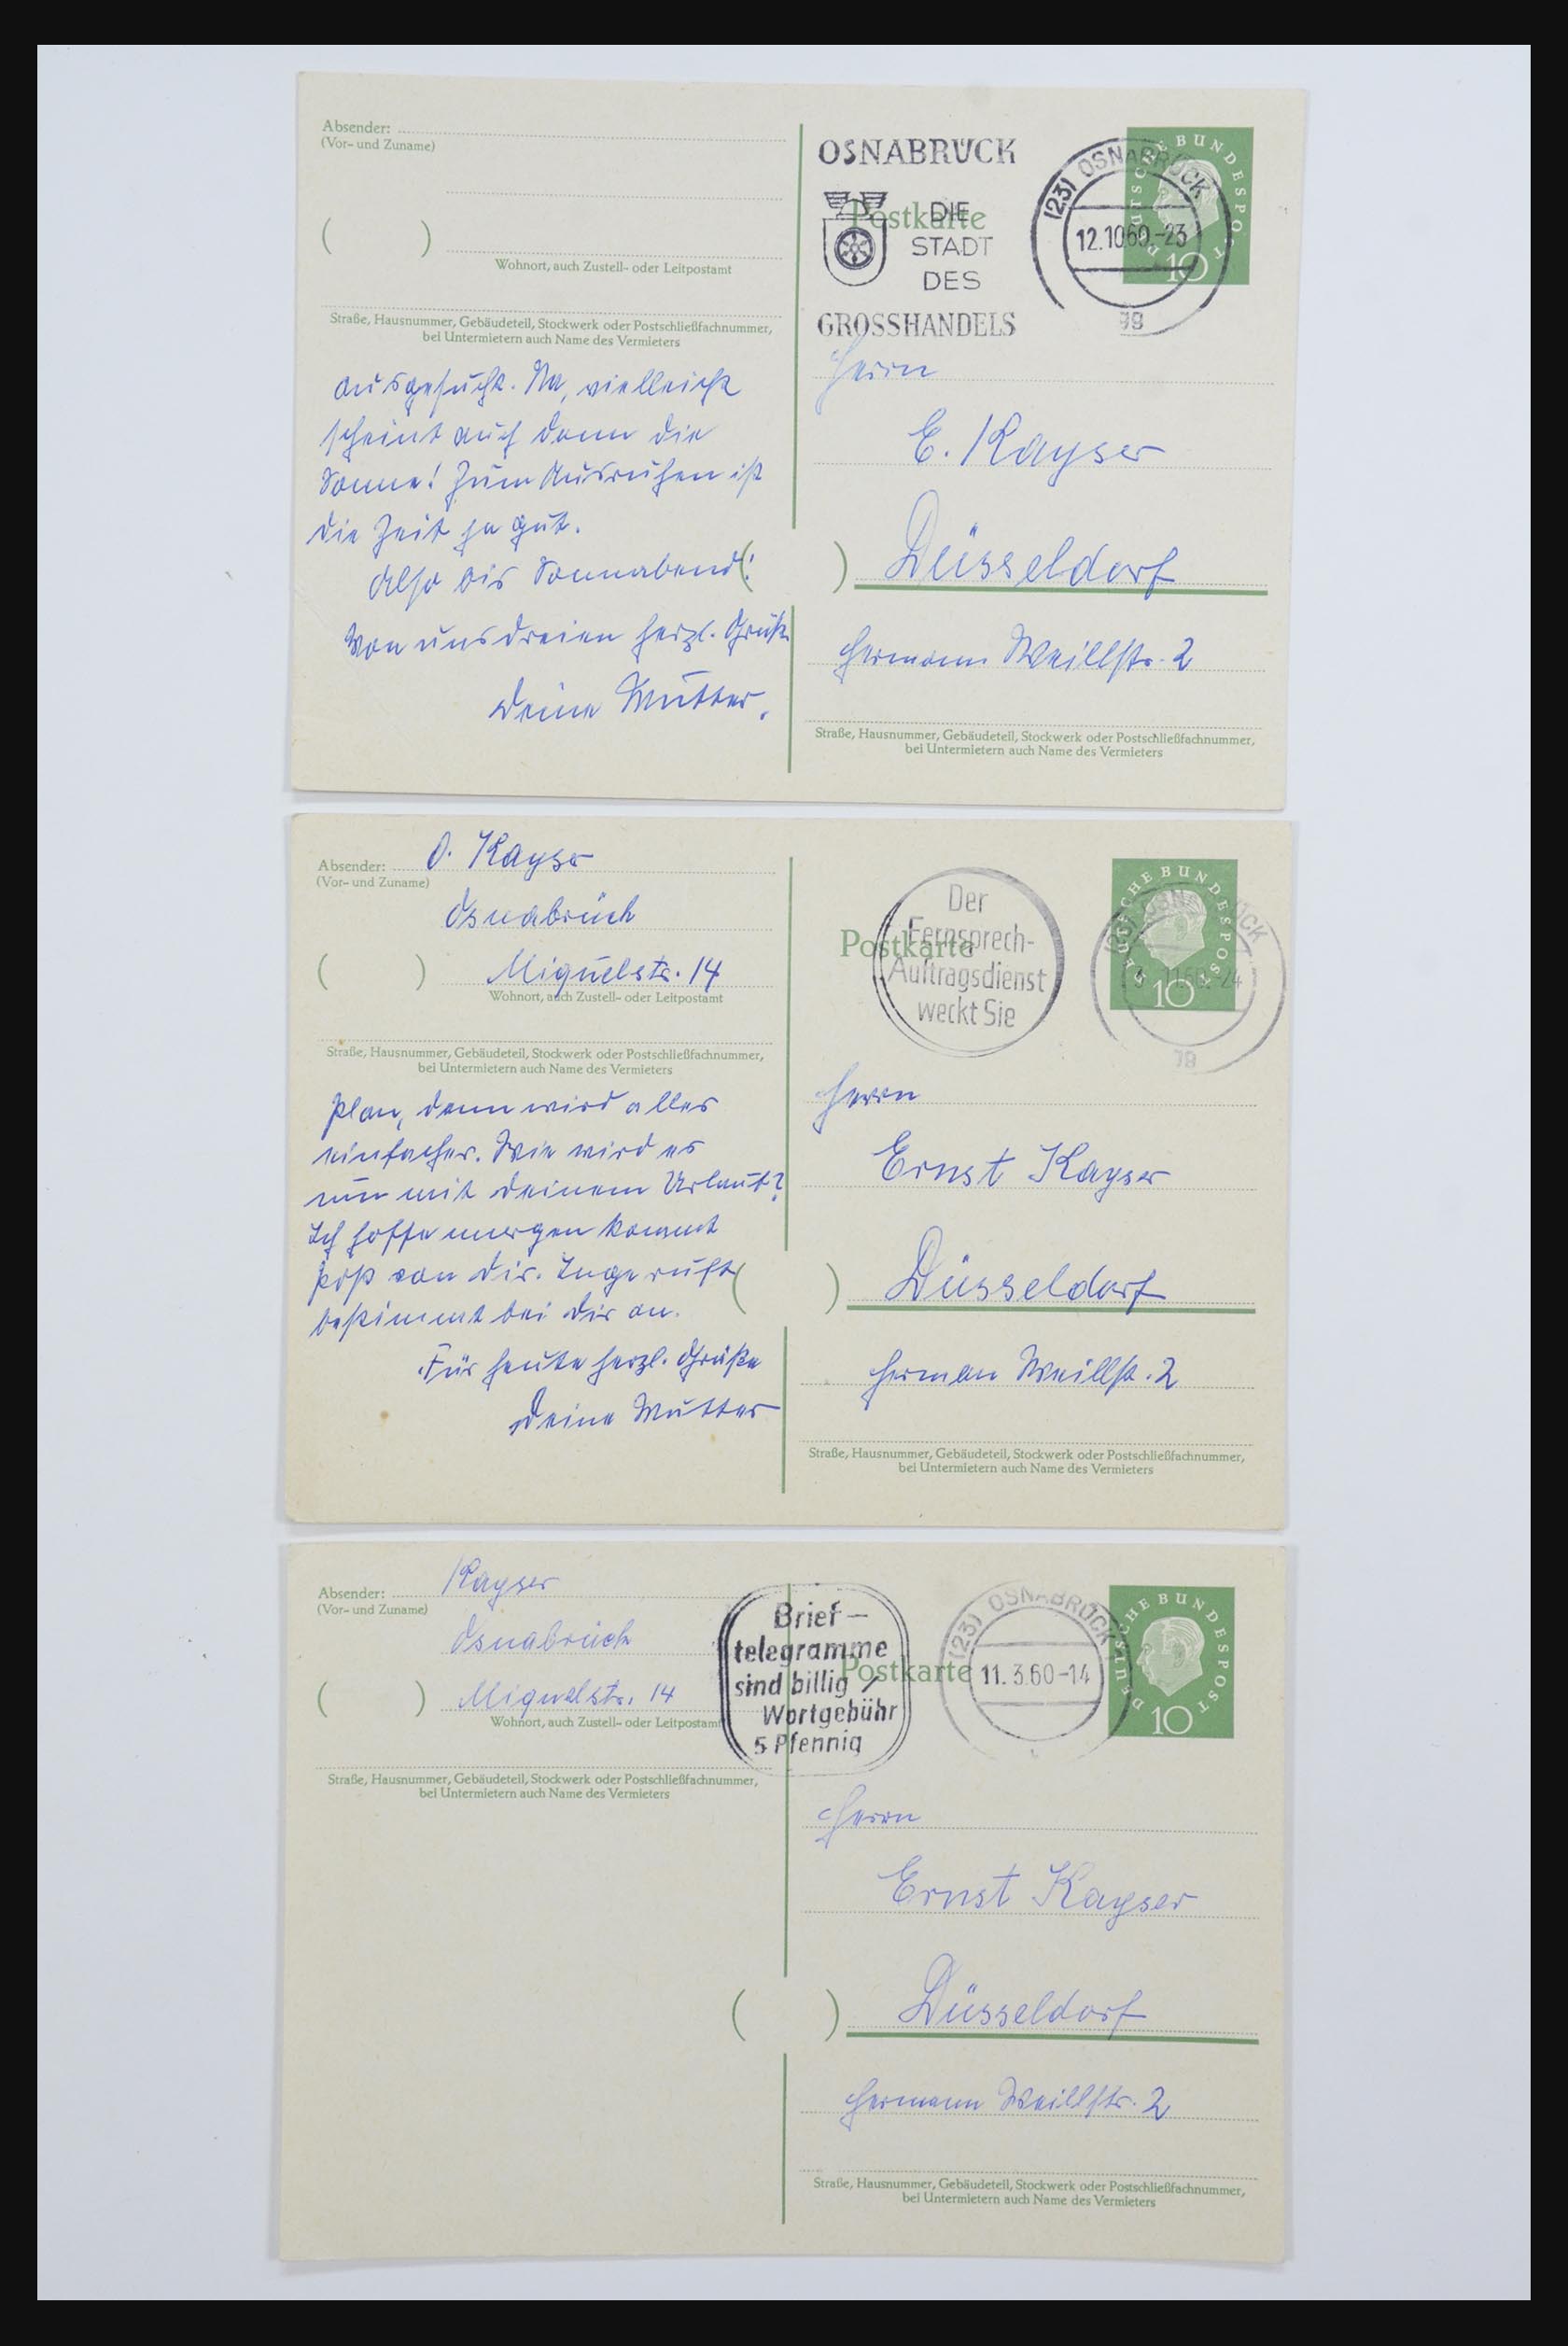 Absender:
(Vor- und Zuname)
(     )
Wohnort, auch Zustell- oder Leitpostamt
Straße, Hausnummer, Gebäudeteil, Stockwerk oder Postschließfachnummer,
bei Untermietern auch Name des Vermieters
ausgesucht. Na, vielleicht
scheint auch dann die
Sonne! Zum Ausruhen ist
die Zeit ja gut.
Also bis Sonnabend!
Von uns dreien herzl. Grüße
Deine Mutter.
OSNABRÜCK
DIE
STADT
DES
GROSSHANDELS
Postkarte
(23) OSNABRÜCK
12.10.60.-23
gg
DEUTSCHE BUNDESPOST
10
Herrn
E. Kayser
(     ) Düsseldorf
Hermann Weillstr. 2
Straße, Hausnummer, Gebäudeteil, Stockwerk oder Postschließfachnummer,
bei Untermietern auch Name des Vermieters
Absender: O. Kayser
(Vor- und Zuname)
Osnabrück
(     ) Miquelstr. 14
Wohnort, auch Zustell- oder Leitpostamt
Straße, Hausnummer, Gebäudeteil, Stockwerk oder Postschließfachnummer,
bei Untermietern auch Name des Vermieters
Plan, dann wird alles
einfacher. Wie wird es
nun mit deinem Urlaub?
Ich hoffe morgen kommt
Post von dir. Inge ruft
bestimmt bei dir an.
Für heute herzl. Grüße
Deine Mutter
Der
Fernsprech-
Auftragsdienst
weckt Sie
Postkarte
(23) OSNABRÜCK
DEUTSCHE BUNDESPOST
10
Herrn
Ernst Kayser
(     ) Düsseldorf
Herman Weillst. 2
Straße, Hausnummer, Gebäudeteil, Stockwerk oder Postschließfachnummer,
bei Untermietern auch Name des Vermieters
Absender: Kayser
(Vor- und Zuname)
Osnabrück
(     ) Miquelstr. 14
Wohnort, auch Zustell- oder Leitpostamt
Straße, Hausnummer, Gebäudeteil, Stockwerk oder Postschließfachnummer,
bei Untermietern auch Name des Vermieters
Brief-
telegramme
sind billig /
Wortgebühr
5 Pfennig
Postkarte
(23) OSNABRÜCK
11.3.60-14
DEUTSCHE BUNDESPOST
10
Herrn
Ernst Kayser
(     ) Düsseldorf
Hermann Weillstr. 2
Straße, Hausnummer, Gebäudeteil, Stockwerk oder Postschließfachnummer,
bei Untermietern auch Name des Vermieters